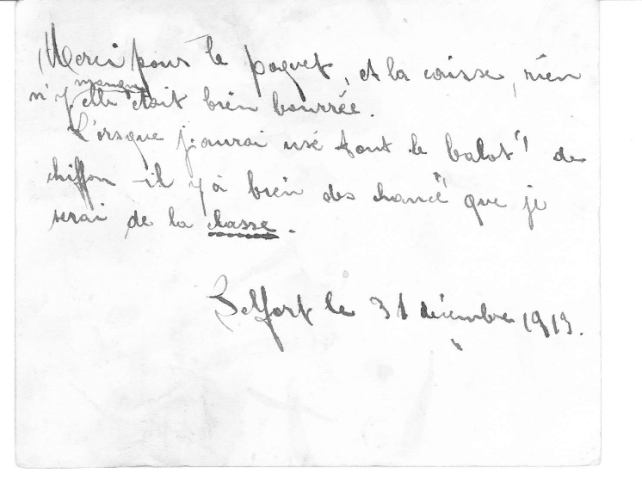 Merci pour le paquet, et la caisse, rien
n'y manquait elle était bien bourrée.
Lorsque j'aurai usé tout le balot" de
chiffon il y a bien des chance" que je
serai de la classe.
Belfort le 31 décembre 1913.